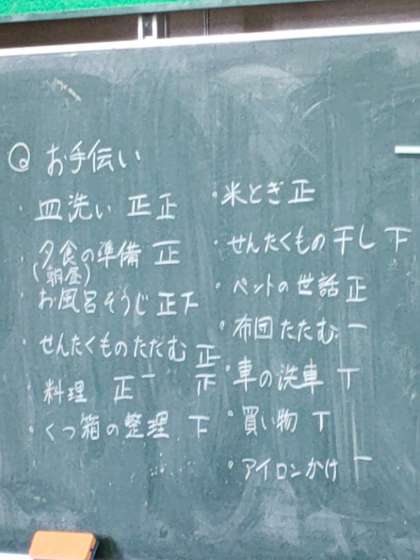 Q お手伝い
・皿洗い 正正
・夕食の準備 正
(朝昼)
・お風呂そうじ 正下
・せんたくものたたむ 正
正
・料理 正一
・くつ箱の整理 下
・米とぎ 正
・せんたくもの干し 下
・ペットの世話 正
・布団たたむ 一
・車の洗車 丅
・買い物 丅
・アイロンかけ 一